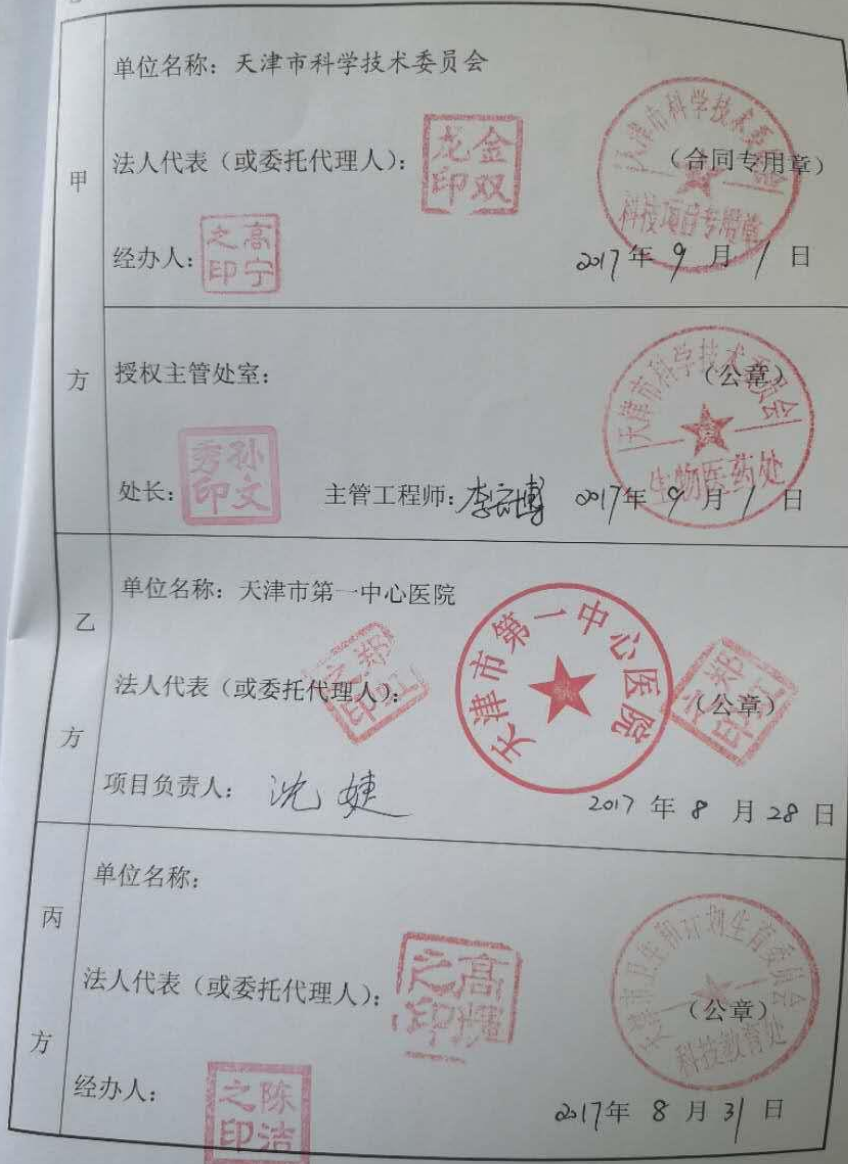 甲方
单位名称：天津市科学技术委员会
法人代表（或委托代理人）：
金双龙印
（合同专用章）
天津市科学技术委员会
科技项目专用章
经办人：
高宁之印
2017年9月1日
授权主管处室：
（公章）
天津市科学技术委员会
生物医药处
处长：
孙文秀印
主管工程师：
2017年9月1日
乙方
单位名称：天津市第一中心医院
法人代表（或委托代理人）：
天津市第一中心医院
（公章）
项目负责人：沈婕
2017年8月28日
丙方
单位名称：
法人代表（或委托代理人）：
高辉之印
（公章）
天津市卫生和计划生育委员会
科技教育处
经办人：
陈洁之印
2017年8月31日